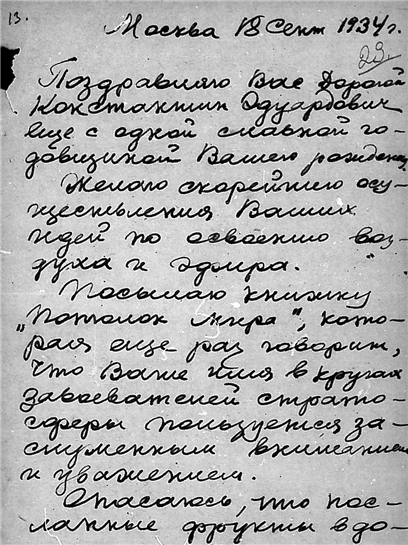 13.
Москва 18 Сент 1934 г.
23.
Поздравляю Вас Дорогой
Константин Эдуардович
еще с одной славной го-
довщиной Вашего рождения
Желаю скорейшего осу-
ществления Ваших
идей по освоению воз-
духа и эфира.
Посылаю книжку
„Потолок мира", кото-
рая еще раз говорит,
что Ваше имя в кругах
завоевателей страто-
сферы пользуется за-
служенным вниманием
и уважением.
Опасаюсь, что пос-
ланные фрукты в до-